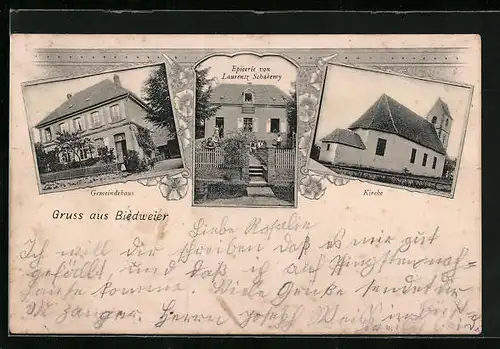 Epicerie von
Laurentz Schakemy
Gemeindehaus
Kirche
Gruss aus Biedweier
Liebe Rosalie
Ich will dir schreiben daß es mir gut
gefällt, und daß ich auf Pfingsten nach
Hause komme. Viele Grüße sendet dir
M Zanger. Herrn Joseph Weiß in